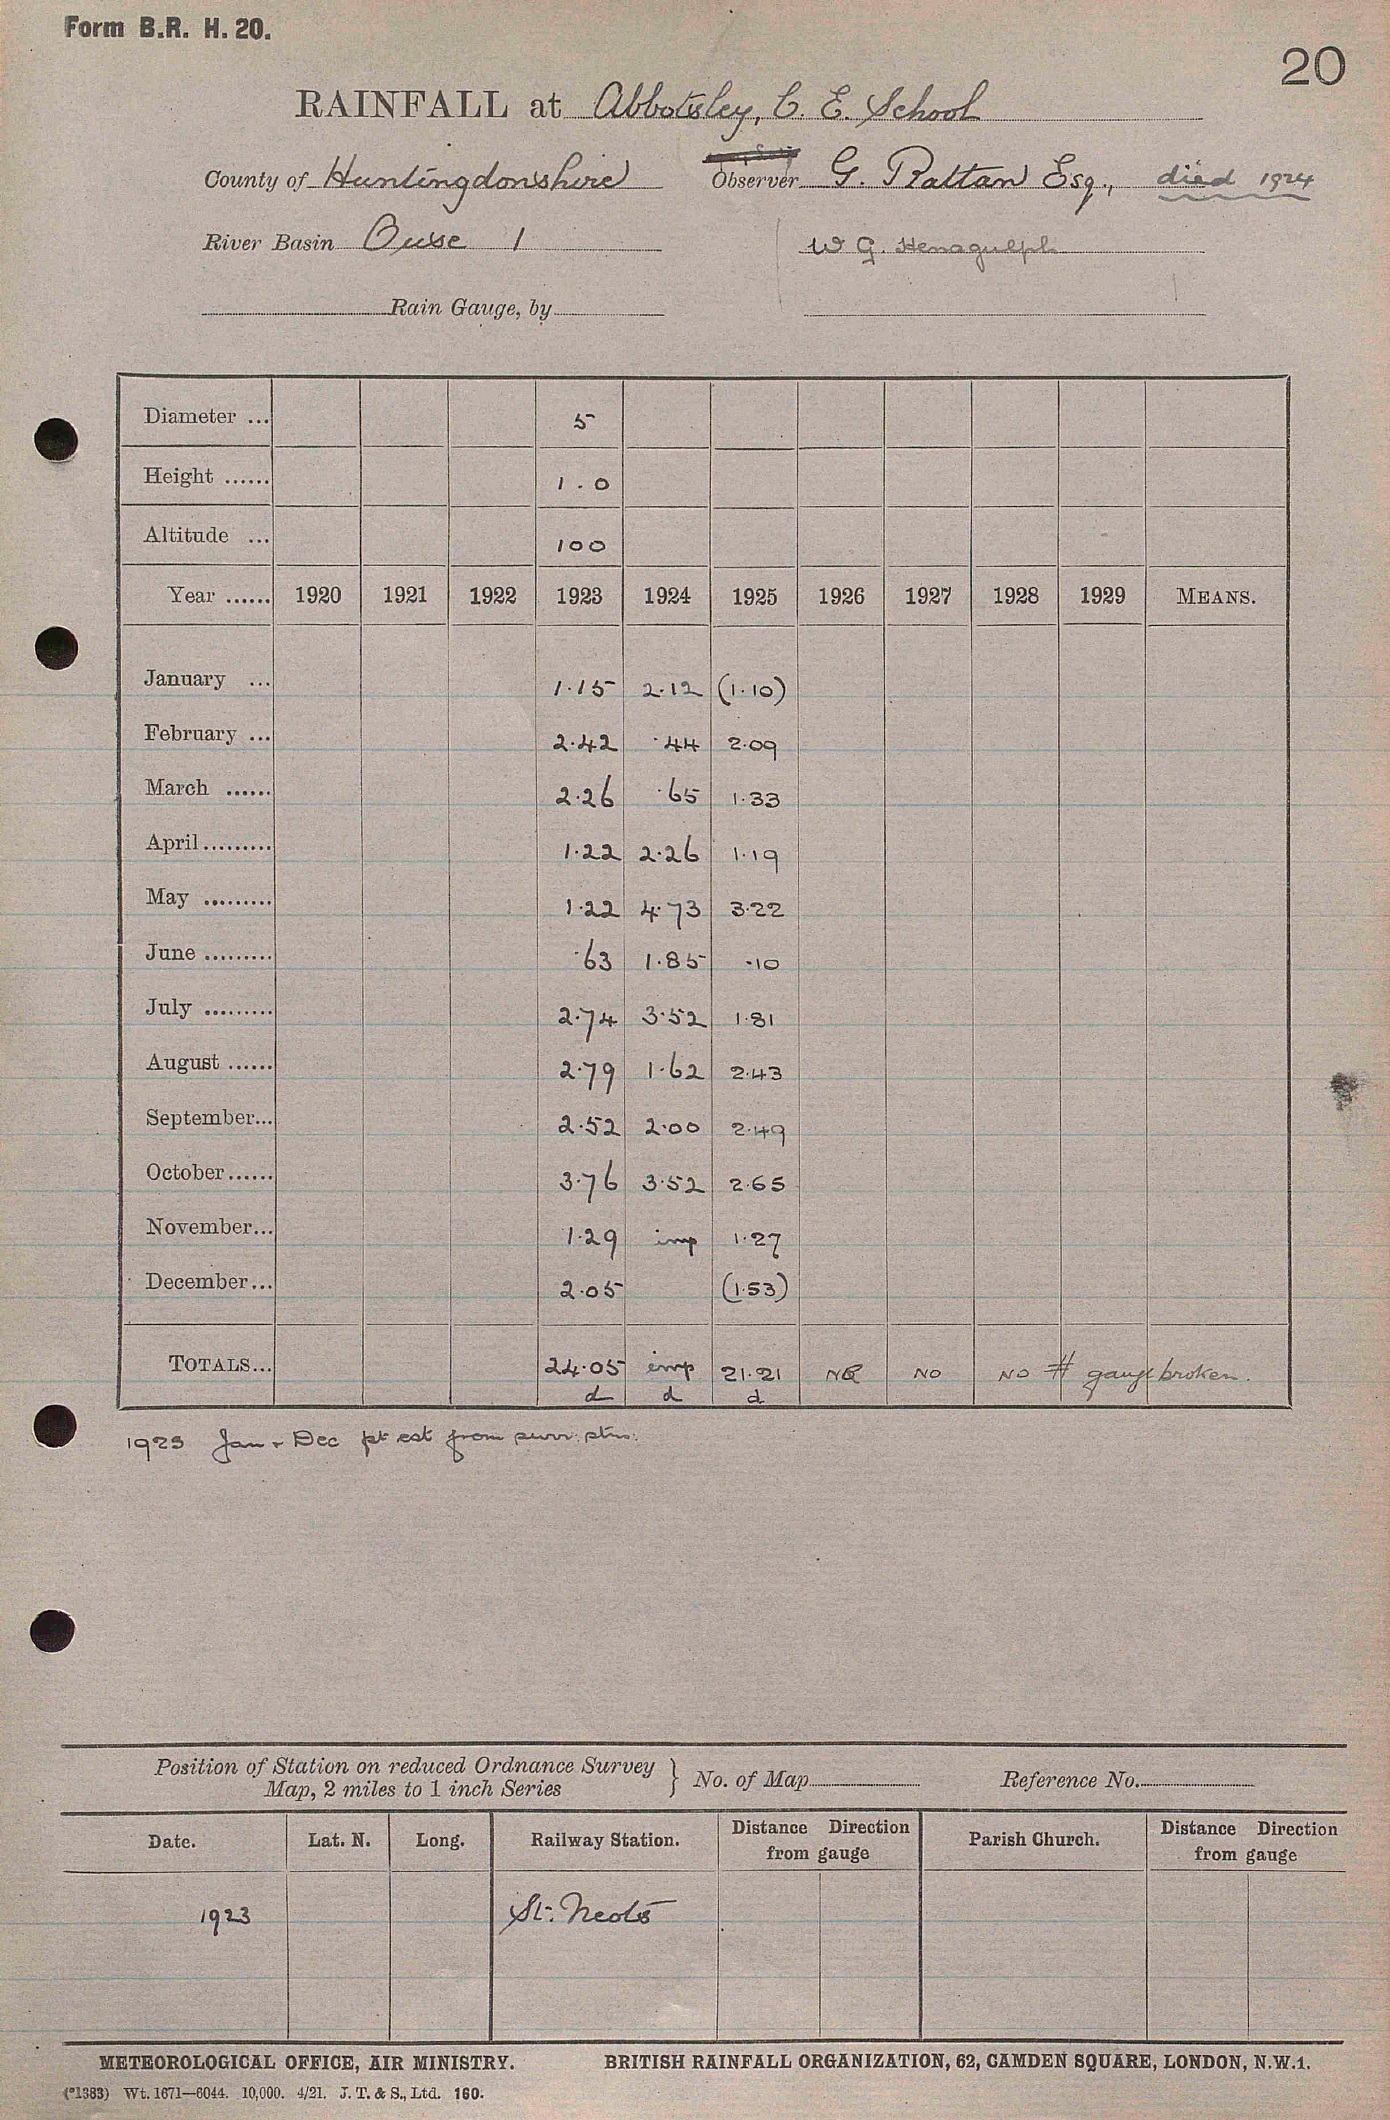 Form B.R. H. 20.
20
RAINFALL at Abbotsley, C. E. School
County of Huntingdonshire Observer G. Rattan Esq., died 1924
River Basin Ouse 1 W G. Henagulph
Rain Gauge, by
Diameter ... 5
Height ...... 1.0
Altitude ... 100
Year ...... 1920 1921 1922 1923 1924 1925 1926 1927 1928 1929 MEANS.
January ... 1.15 2.12 (1.10)
February ... 2.42 .44 2.09
March ...... 2.26 .65 1.33
April ......... 1.22 2.26 1.19
May ......... 1.22 4.73 3.22
June ......... .63 1.85 .10
July ......... 2.74 3.52 1.81
August ...... 2.79 1.62 2.43
September... 2.52 2.00 2.49
October...... 3.76 3.52 2.65
November... 1.29 imp 1.27
December... 2.05 (1.53)
TOTALS... 24.05 imp 21.21 NR NO NO # gauge broken.
d d d
1925 Jan + Dec pt est from surr. stns.
Position of Station on reduced Ordnance Survey
Map, 2 miles to 1 inch Series } No. of Map Reference No.
Date. Lat. N. Long. Railway Station. Distance Direction from gauge Parish Church. Distance Direction from gauge
1923 St. Neots
METEOROLOGICAL OFFICE, AIR MINISTRY. BRITISH RAINFALL ORGANIZATION, 62, CAMDEN SQUARE, LONDON, N.W.1.
(*1383) Wt. 1671—6044. 10,000. 4/21. J. T. & S., Ltd. 160.